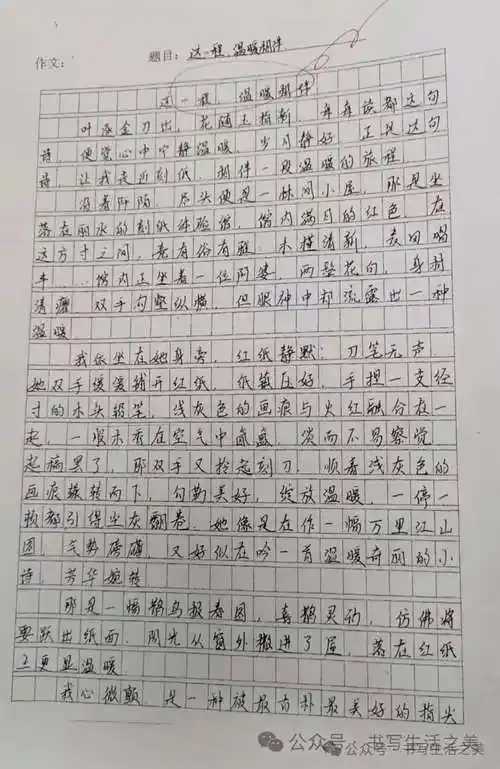 作文: 题目: 这一程,温暖相伴
这一程,温暖相伴
叶逐金刀出,花随玉指新。每每读都这句
诗,便觉心中宁静温暖,岁月静好。正是这句
诗,让我走近刻纸,相伴一段温暖的旅程
沿着阡陌,尽头便是一林间小屋,那是坐
落在丽水的刻纸体验馆,馆内满目的红色,在
这方寸之间,素有俗有雅,木槿清新,
车……馆内正坐着一位阿婆,两鬓花白,身材
清癯,双手勾壑纵横,但眼神中却流露出一种
温暖。
我依坐在她身旁,红纸静默;刀笔无声。
她双手缓缓铺开红纸,纸镇压好,手捏一支经
寸的木头铅笔,浅灰色的画痕与火红融合在一
起,一股木香在空气中氤氲,淡而不易察觉。
起稿罢了,那双手又拾起刻刀,顺着浅灰色的
画痕旋转而下,勾勒美好,绽放温暖,一停一
顿都引得尘灰翻卷。她像是在作一幅万里江山
图,气势磅礴,又好似在吟一首温暖奇丽的小
诗,芳华婉转
那是一幅鹊鸟报春图,喜鹊灵动,仿佛将
要跃出纸面,阳光从窗外撒进了屋,落在红纸
上更显温暖。
我心微颤,是一种被最古朴最美好的指尖
公众号·书写生活之美
公众号·书写生活之美